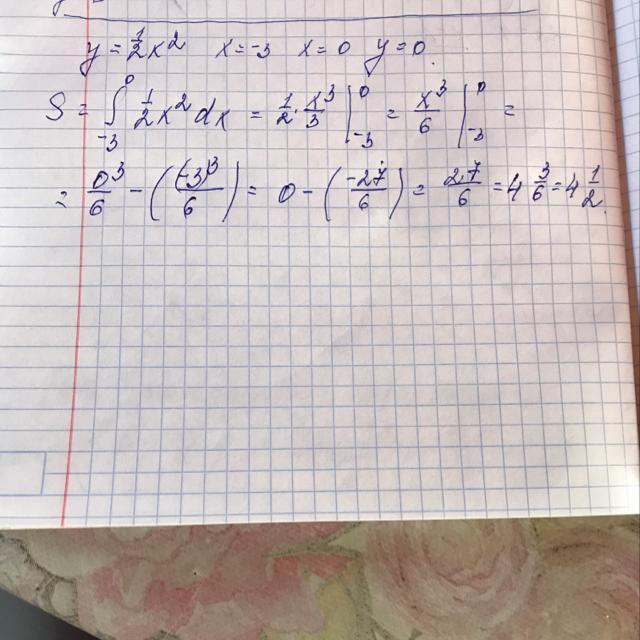 y = 1/2 x² x = -3 x = 0 y = 0
S = ∫₋₃⁰ 1/2 x² dx = 1/2 · x³/3 |₋₃⁰ = x³/6 |₋₃⁰ =
= 0³/6 - ((-3)³/6) = 0 - (-27/6) = 27/6 = 4 3/6 = 4 1/2